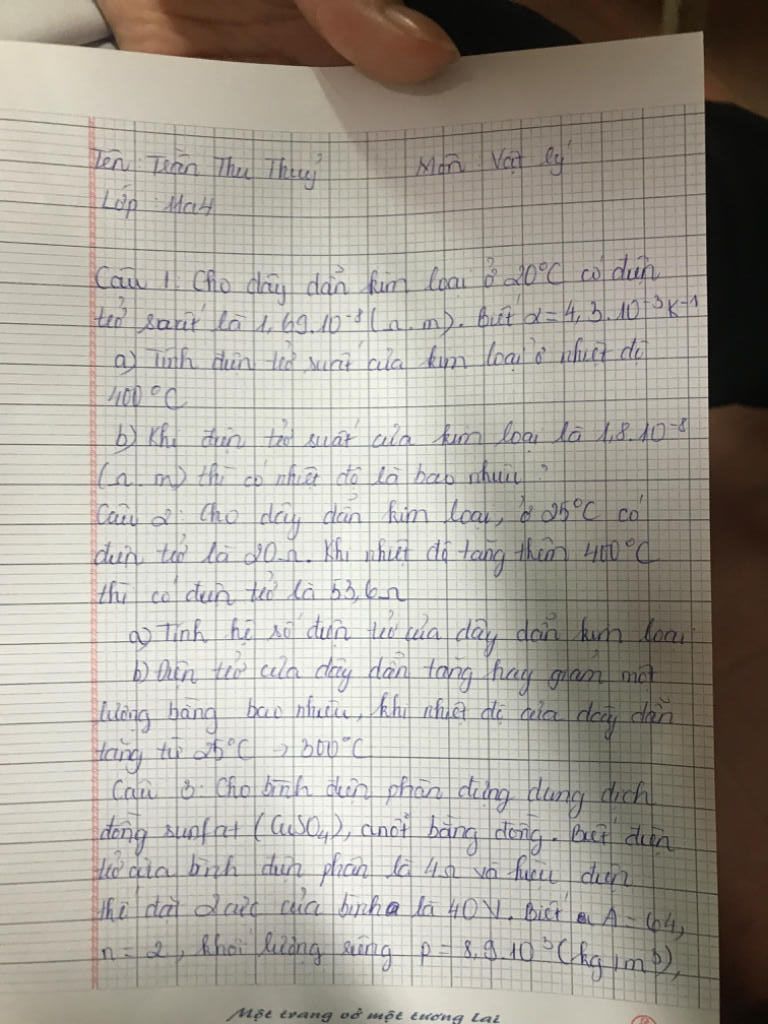 Tên Trần Thu Thuỷ Môn Vật lý
Lớp 11a4
Câu 1: Cho dây dẫn kim loại ở 20°C có điện
trở suất là 1,69.10⁻⁸ (Ω.m). Biết α = 4,3.10⁻³K⁻¹
a) Tính điện trở suất của kim loại ở nhiệt độ
400°C
b) Khi điện trở suất của kim loại là 1,8.10⁻⁸
(Ω.m) thì có nhiệt độ là bao nhiêu?
Câu 2: Cho dây dẫn kim loại, ở 25°C có
điện trở là 20Ω. Khi nhiệt độ tăng thêm 400°C
thì có điện trở là 53,6Ω
a) Tính hệ số điện trở của dây dẫn kim loại
b) Điện trở của dây dẫn tăng hay giảm một
lượng bằng bao nhiêu, khi nhiệt độ của dây dẫn
tăng từ 25°C → 300°C
Câu 3: Cho bình điện phân đựng dung dịch
đồng sunfat (CuSO₄), anốt bằng đồng. Biết điện
trở của bình điện phân là 4Ω và hiệu điện
thế đặt 2 cực của bình là 40V. Biết A = 64,
n = 2, khối lượng riêng ρ = 8,9.10³ (kg/m³),
Một trang vở một tương lai